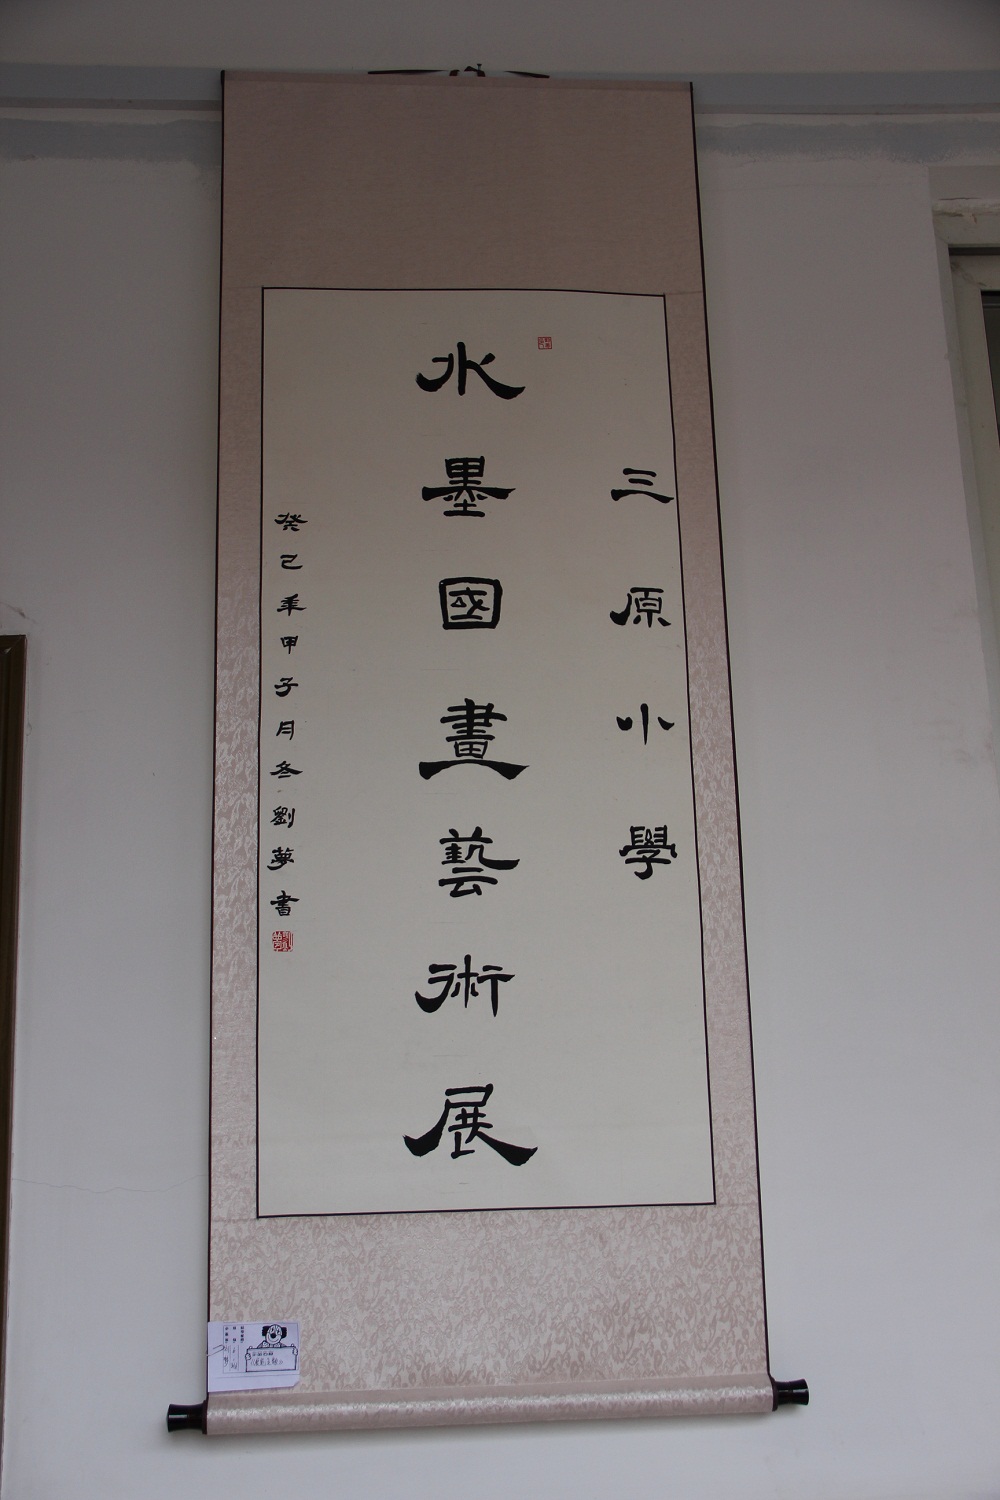 三原小學
水墨國畫藝術展
癸巳年甲子月冬劉夢書